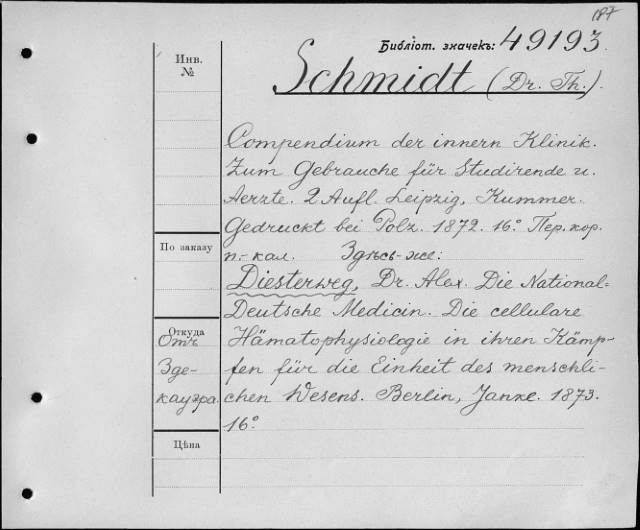 187
Библіот. значекъ: 49193.
Инв.
№
Schmidt (Dr. Th.).
Compendium der innern Klinik.
Zum Gebrauche für Studirende u.
Aerzte. 2 Aufl. Leipzig, Kummer.
Gedruckt bei Polz. 1872. 16° Пер. кор.
По заказу
п.-кал. Здѣсь-же:
Diesterweg, Dr. Alex. Die National-
Deutsche Medicin. Die cellulare
Откуда
Отъ
Зде-
кауэра.
Hämatophysiologie in ihren Kämp-
fen für die Einheit des menschli-
chen Wesens. Berlin, Janke. 1873.
16°
Цѣна